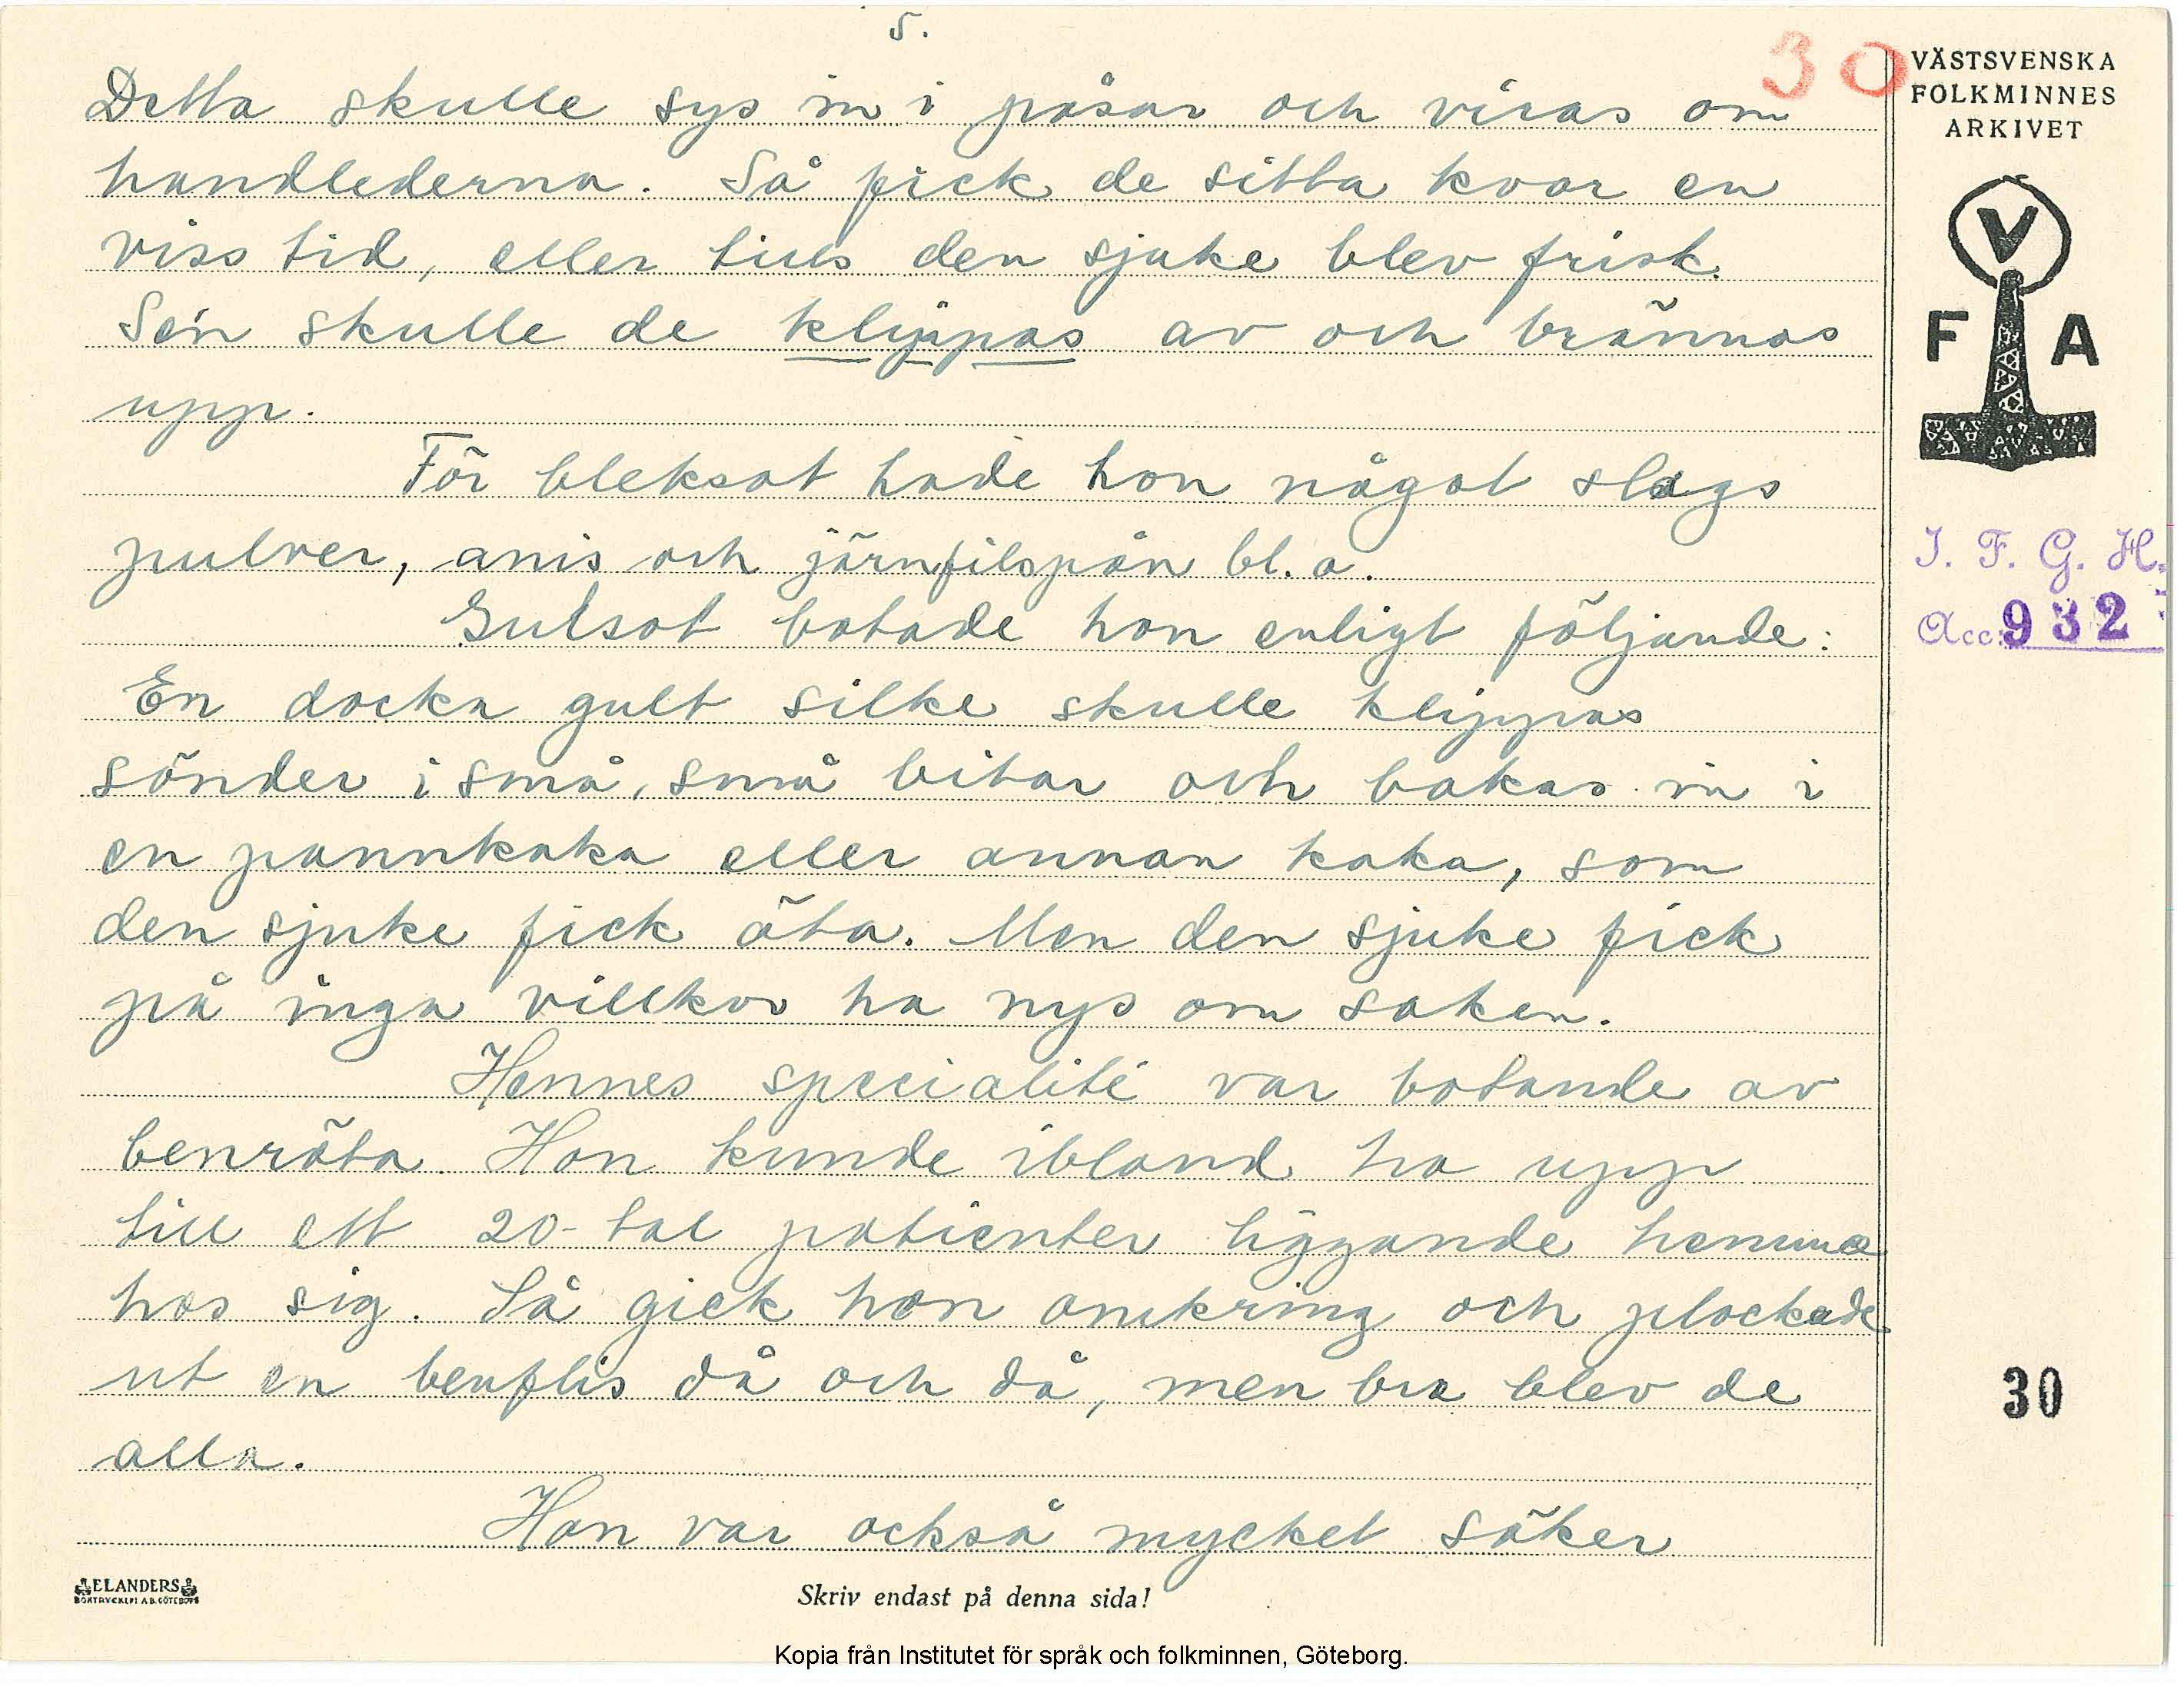 5.
30
VÄSTSVENSKA
FOLKMINNES
ARKIVET
Detta skulle sys in i påsar och viras om
handlederna. Så fick de sitta kvar en
viss tid, eller tills den sjuke blev frisk.
Sen skulle de klippas av och brännas
upp.
För bleksot hade hon något slags
pulver, anis och järnfilspån bl. a.
Gulsot botade hon enligt följande:
En docka gult silke skulle klippas
sönder i små, små bitar och bakas in i
en pannkaka eller annan kaka, som
den sjuke fick äta. Men den sjuke fick
på inga villkor ha nys om saken.
Hennes specialité var botande av
benröta. Hon kunde ibland ha upp
till ett 20-tal patienter liggande hemma
hos sig. Så gick hon omkring och plockade
ut en benflis då och då, men bra blev de
alla.
Hon var också mycket säker
V
F A
I. F. G. H.
Acc: 932
30
ELANDERS
BOKTRYCKERI A.B. GÖTEBORG
Skriv endast på denna sida!
Kopia från Institutet för språk och folkminnen, Göteborg.